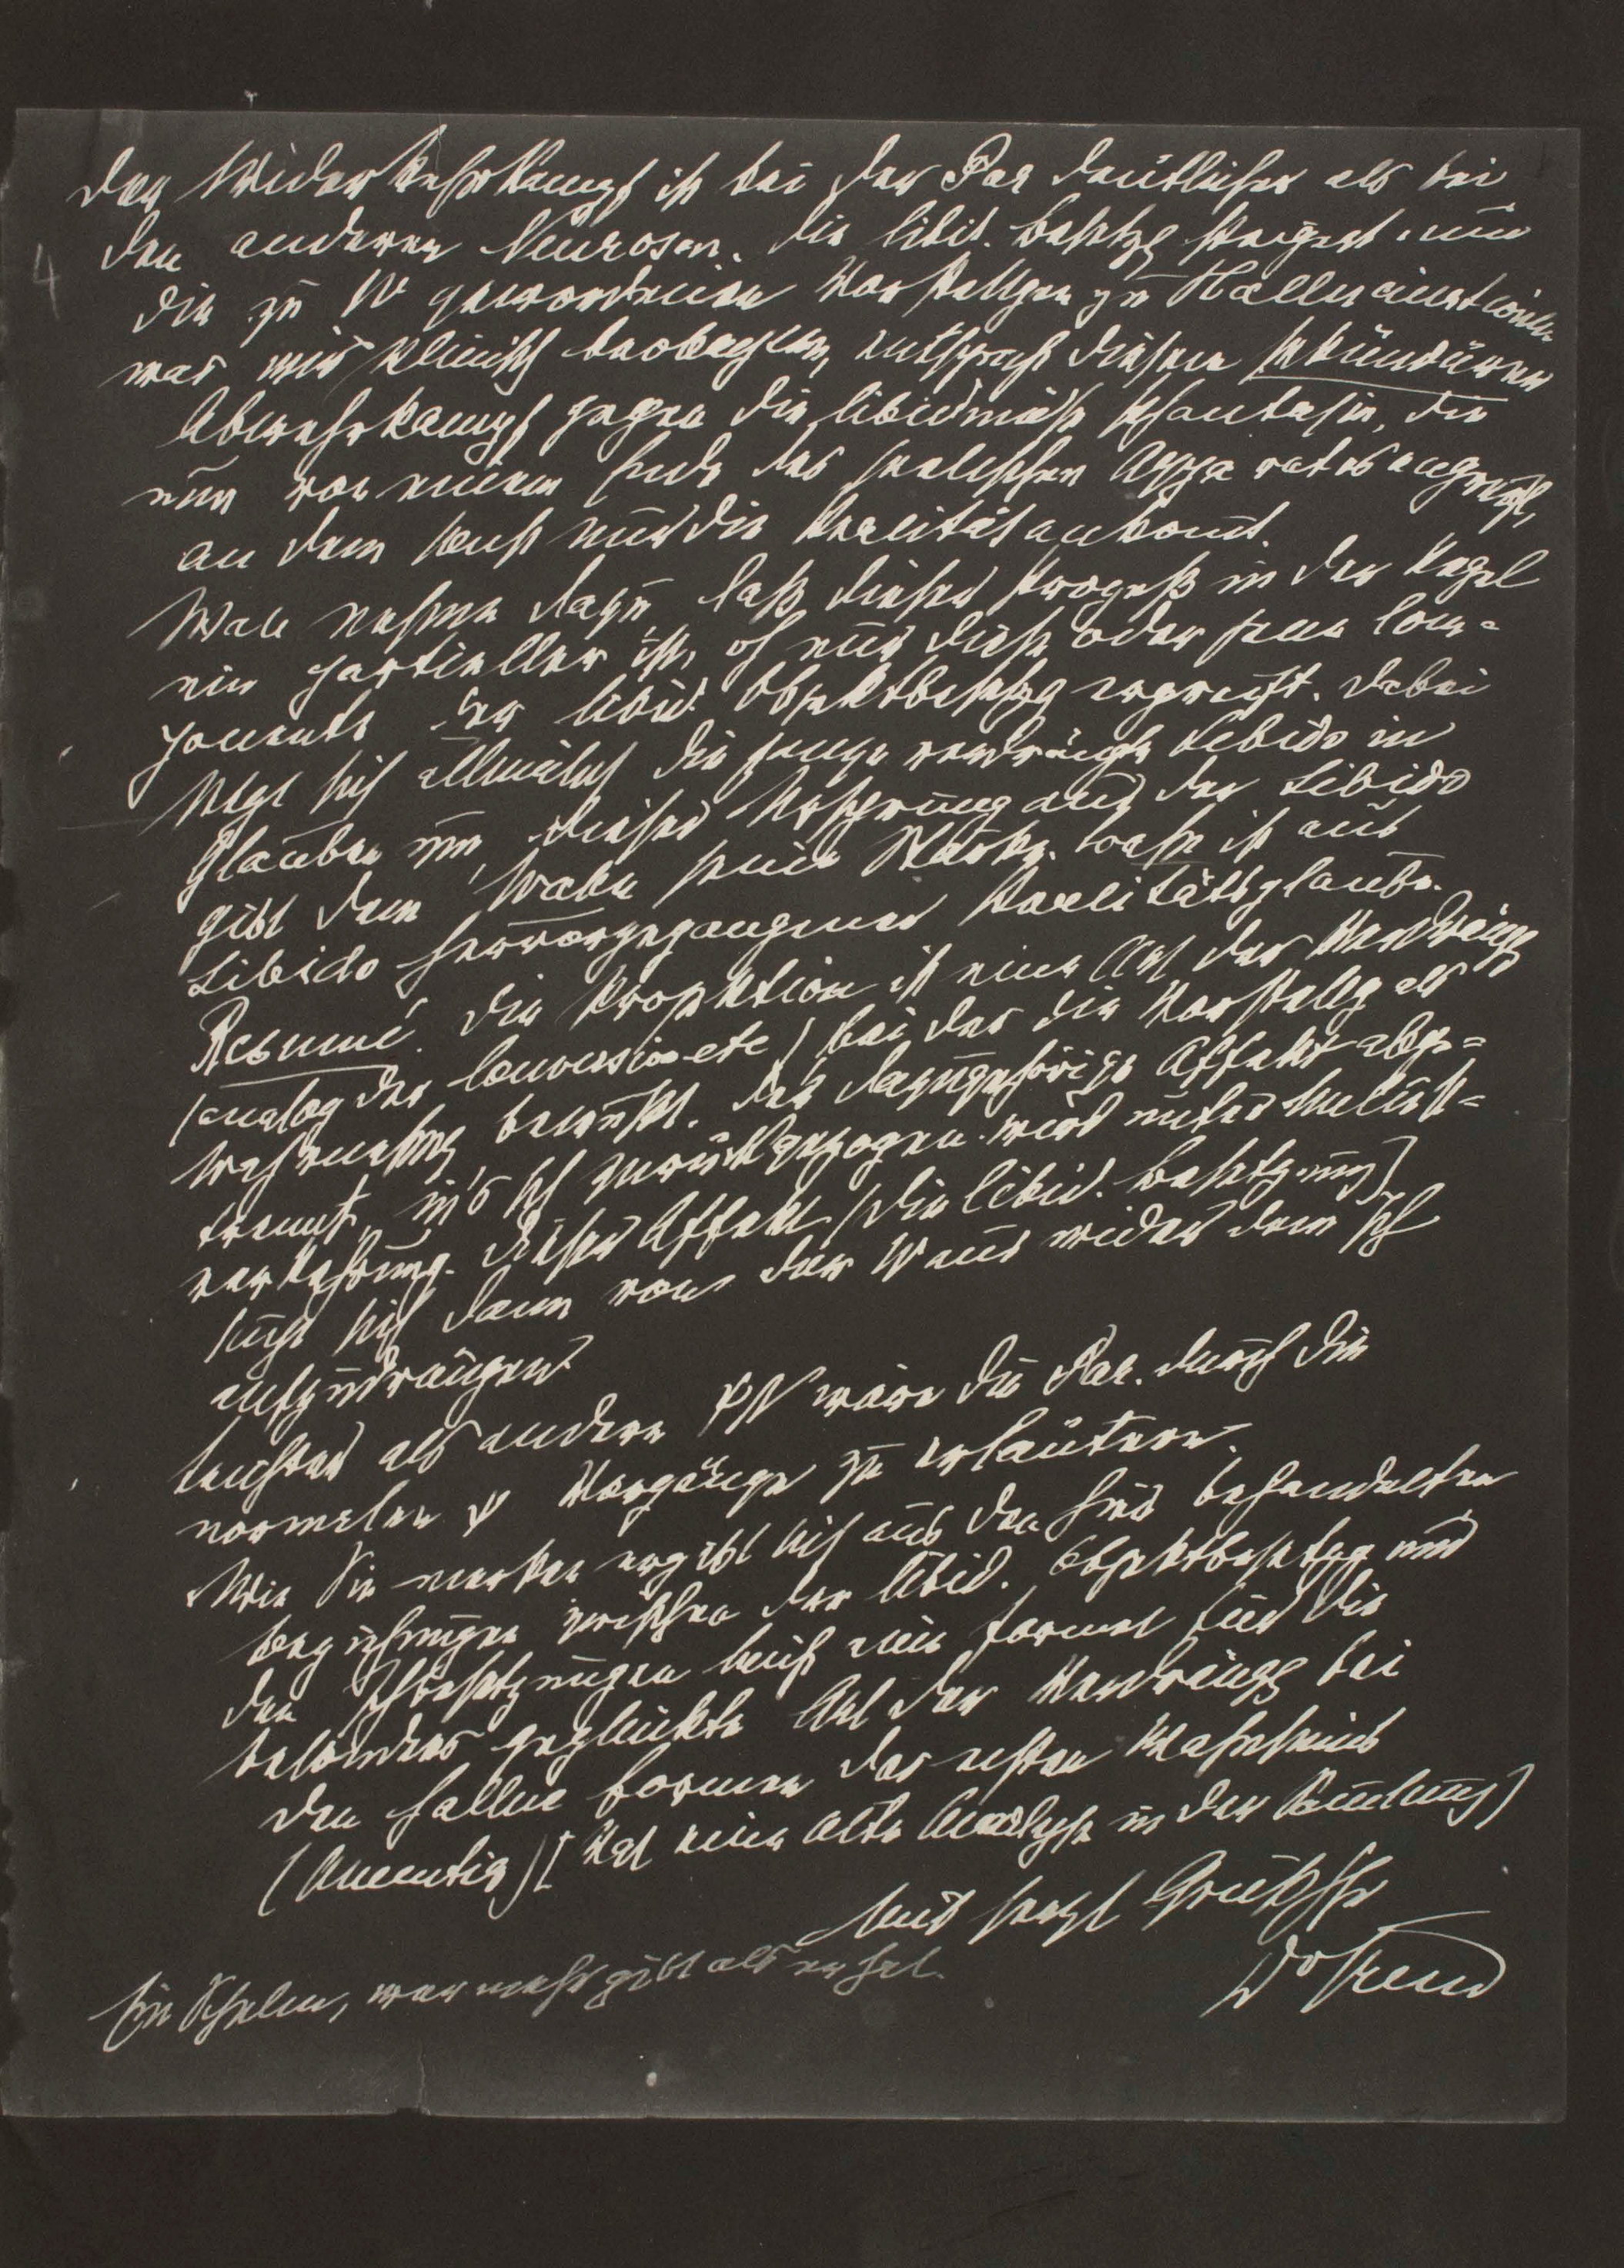 Der Wiederkehrkampf ist bei der Par deutlicher als bei
den anderen Neurosen. Die libid. Besetzg steigert nun
die zu W gewordenen Vorstellgen zu Hallucinationen
was wir klinisch beobachten, entspricht diesem sekundären
Abwehrkampf gegen die libidinöse Phantasie, die
nun von einem Ende des seelischen Apparates angreift,
an dem sonst nur die Realität ankomt.
Man nehme dazu, daß dieser Prozeß in der Regel
ein partieller ist, oft nur diese oder jene Com-
ponente der libid. Objektbesetzg ergreift. Dabei
setzt sich allmälich die ganze verdrängte Libido in
Glauben um, dieser Ursprung aus der Libido
gibt dem Wahn seine Stärke. Wahn ist aus
Libido hervorgegangener Realitätsglaube.
Resumé. Die Projektion ist eine Art der Verdrängg
(analog der Conversion etc) bei der die Vorstellg als
Wahrnehmg bewußt. Der dazugehörige Affekt abge-
trennt, in's Ich zurückgezogen wird unter Unlust-
verkehrung. Dieser Affekt (die libid. Besetzung)
sucht sich dann von der W aus wieder dem Ich
aufzudrängen.
Leichter als andere ΨN wäre die Par. durch die
normalen ψ Vorgänge zu erläutern.
Wie Sie merken ergibt sich aus den hier behandelten
Beziehungen zwischen der libid. Objektbesetzg und
den Ichbesetzungen leicht eine Formel für die
besonders geglückte Art der Verdrängg bei
den halluc Formen des echten Wahnsinns
(Amentia) [Vgl eine alte Analyse in der Samlung]
Mit herzl Gruß Ihr
Dr Freud
Ein Schelm, wer mehr gibt als er hat.
4